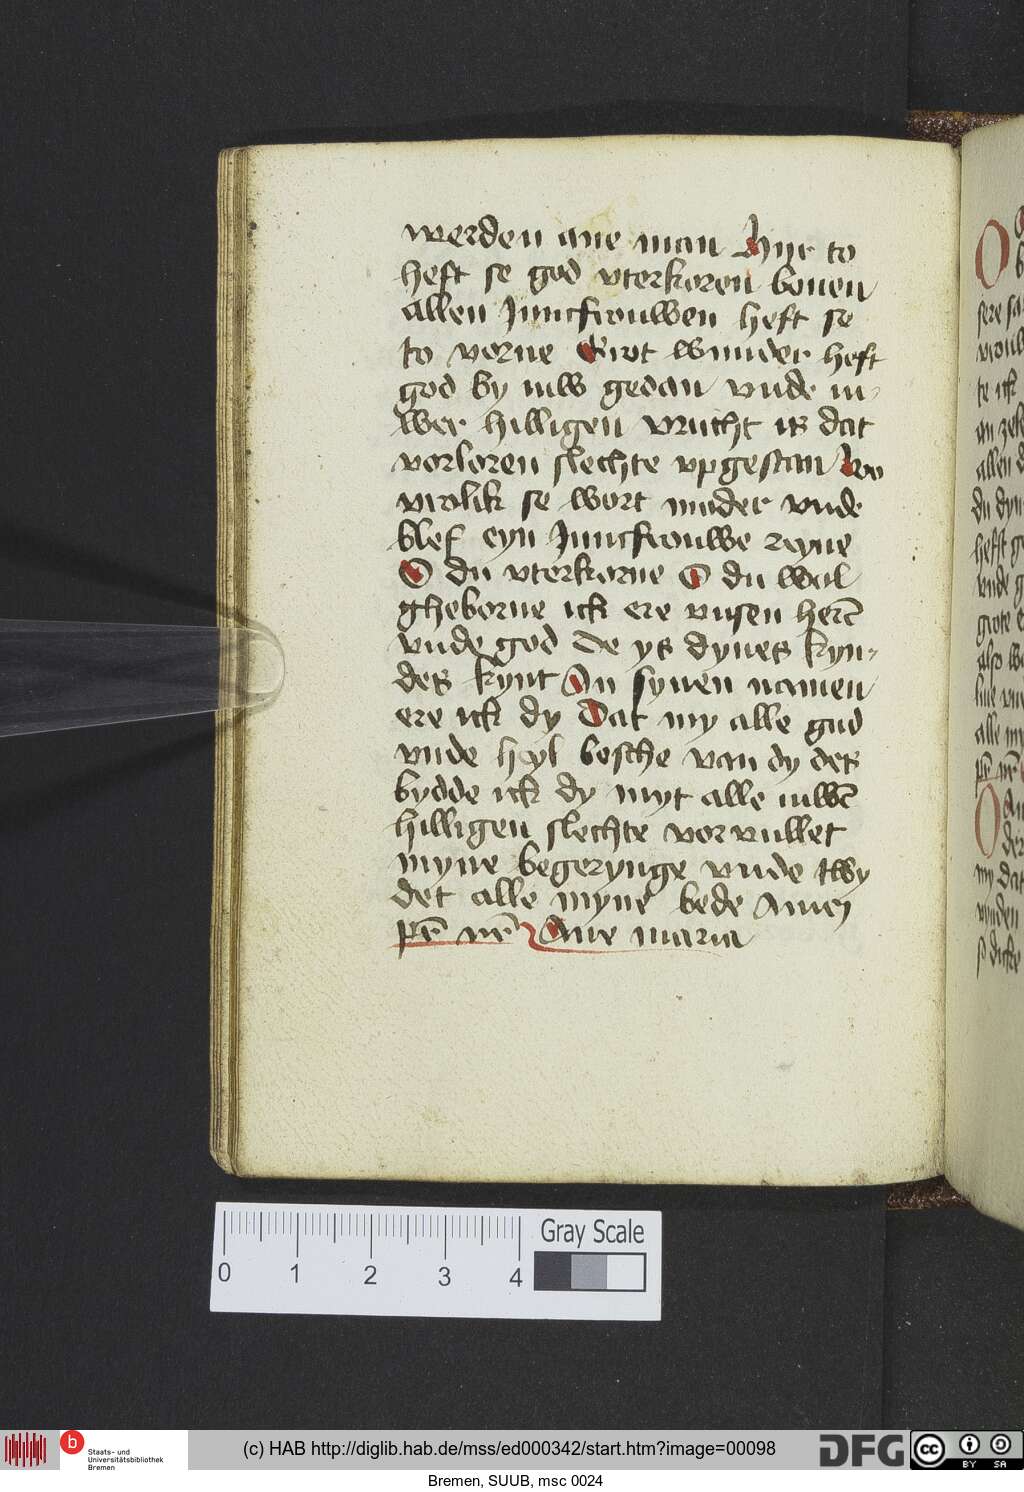 werden ane man Hyr to
heft se god vterkoren bouen
allen Juncfrouwen heft se
to vorne Grot wunder heft
god by iuw gedan vnde iu-
wer hilligen vrucht is dat
vorloren slechte vpgestan Wo
vrolik se wort moder vnde
blef eyn Juncfrouwe reyne
O du vterkorne O du wol
gheborne ick ere vnsen herē
vnde god de ys dynes kyn-
des kynt An synen namen
ere ick dy Dat my alle gud
vnde heyl besche van dy des
bydde ick dy myt alle iuwē
hilligen slechte vor vullet
myne begerynge vnde twy
det alle myne bede Amen
pr̄ nr̄ Aue maria
0 1 2 3 4 Gray Scale
b Staats- und
Universitätsbibliothek
Bremen
(c) HAB http://diglib.hab.de/mss/ed000342/start.htm?image=00098
DFG cc BY SA
Bremen, SUUB, msc 0024